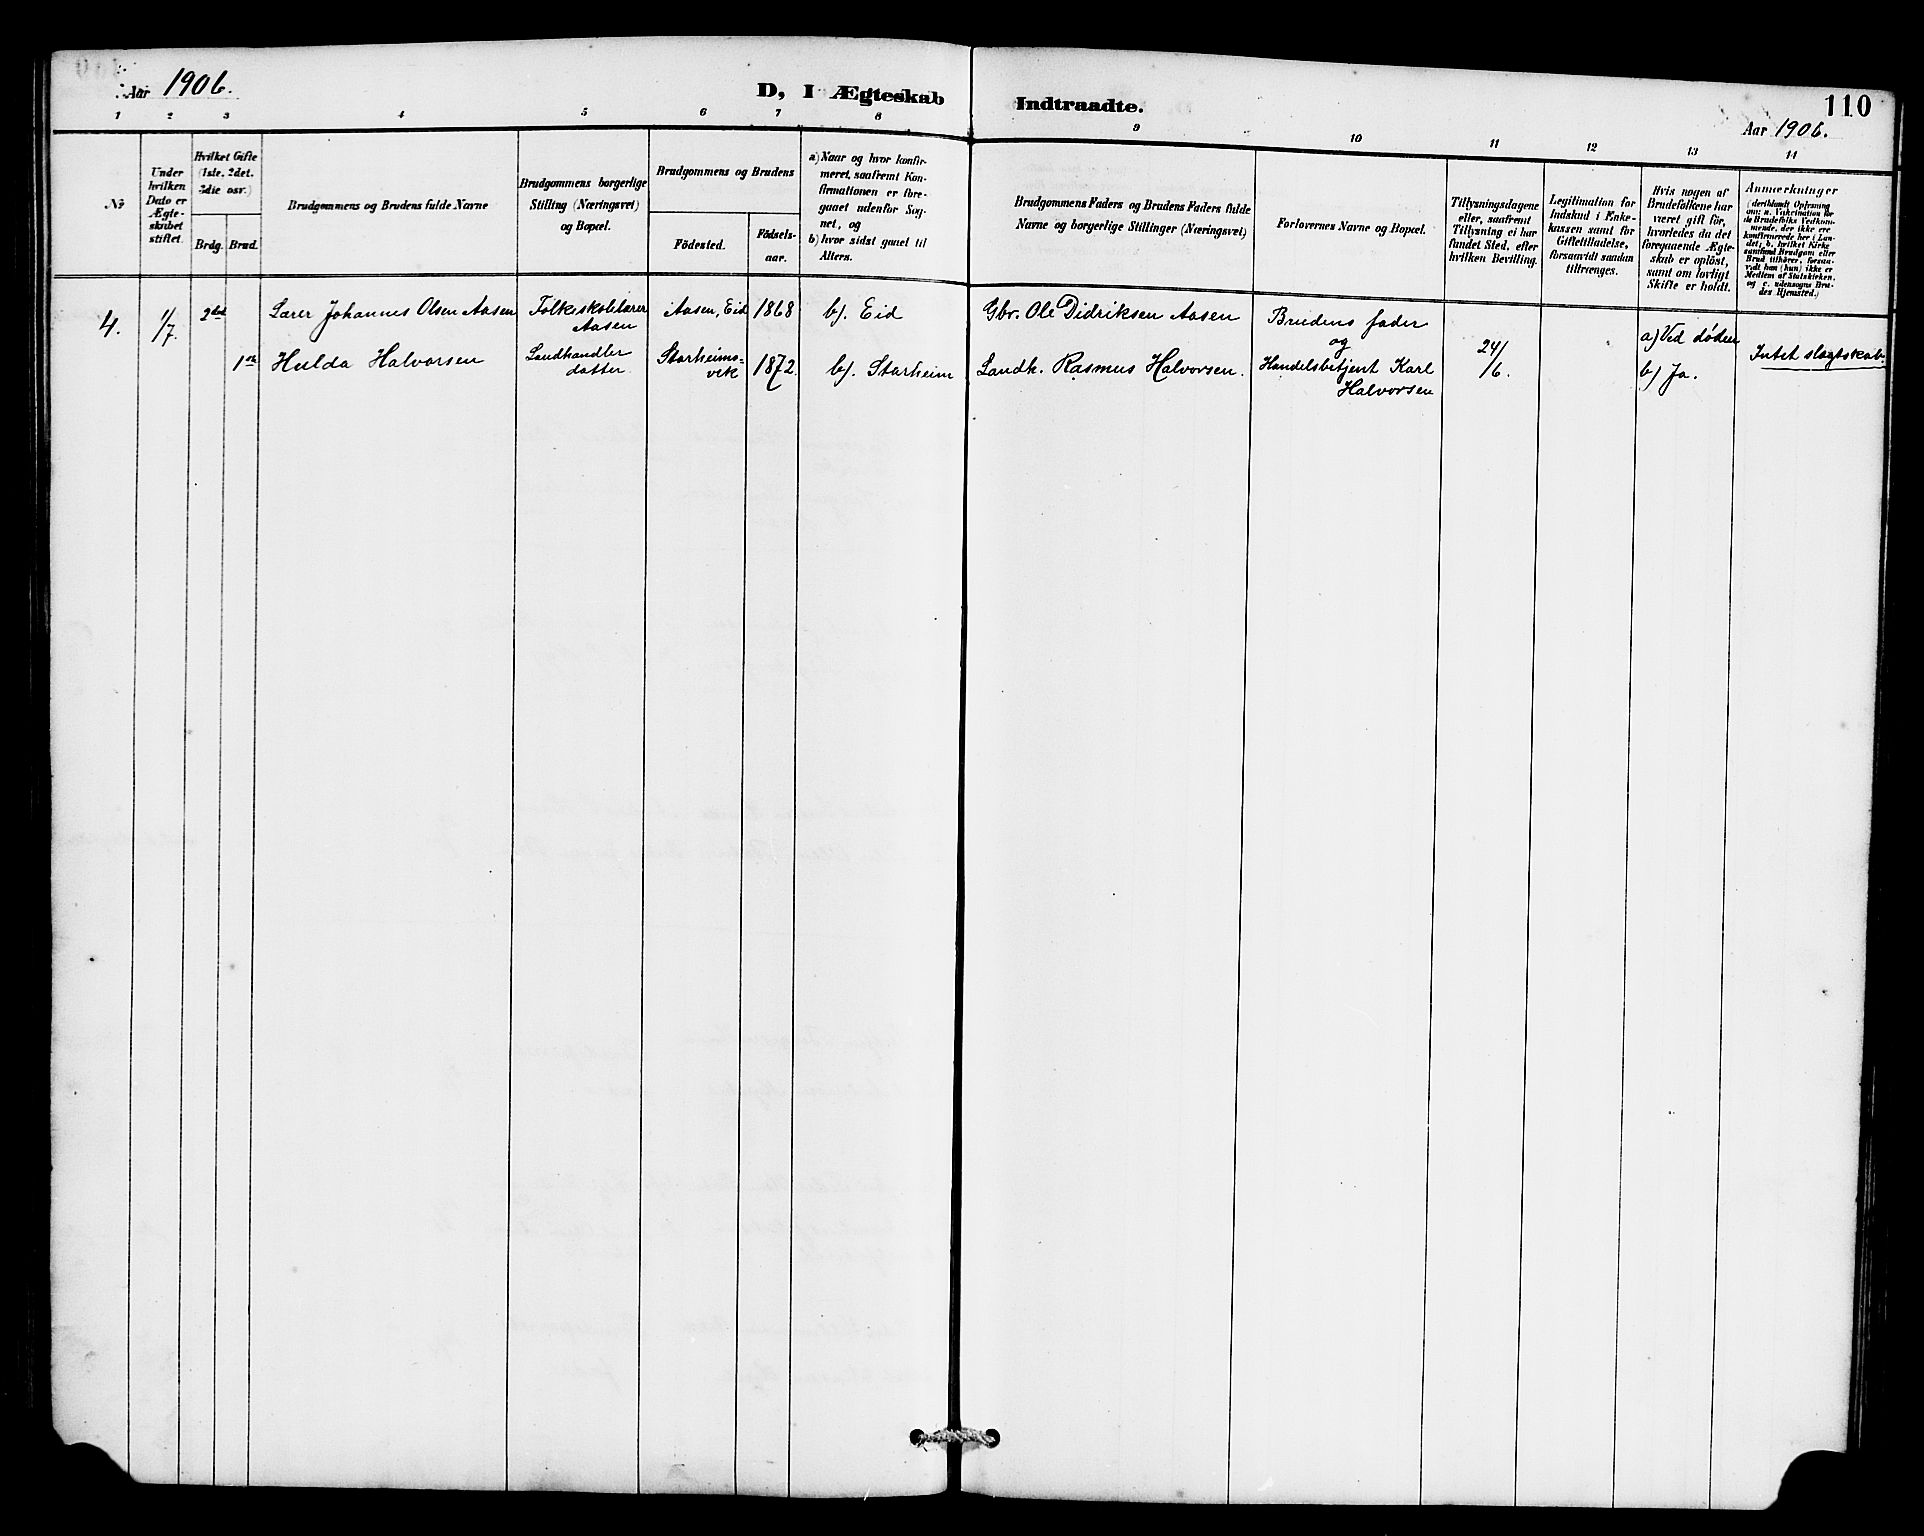 Aar 1906.
D, I Ægteskab Indtraadte.
110
Aar 1906.
1 2 3 4 5 6 7 8 9 10 11 12 13 14
No
Under
hvilken
Dato er
Ægte-
skabet
stiftet.
Hvilket Gifte
(1ste, 2det.
3die osv.)
Brdg. Brud.
Brudgommens og Brudens fulde Navne
Brudgommens borgerlige
Stilling (Næringsvei)
og Bopæl.
Brudgommens og Brudens
Födested.
Födsels-
aar.
a) Naar og hvor konfir-
meret, saafremt Kon-
firmationen er fore-
gaaet udenfor Sog-
net, og
b) hvor sidst gaaet til
Alters.
Brudgommens Faders og Brudens Faders fulde
Navne og borgerlige Stillinger (Næringsvei)
Forlovernes Navne og Bopæl.
Tillysningsdagene
eller, saafremt
Tillysning ei har
fundet Sted, efter
hvilken Bevilling.
Legitimation for
Indskud i Enke-
kassen samt for
Giftetilladelse,
forsaavidt saadan
tiltrænges.
Hvis nogen af
Brudefolkene har
været gift för,
hvorledes da det
foregaaende Ægte-
skab er oplöst,
samt om lovligt
Skifte er holdt.
Anmærkninger
(deriblandt Oplysning
om: a. Vakcination for
de Brudefolks Vedkom-
mende, der ikke ere
konfirmerede her i Lan-
det; b. hvilket Kirke
samfund Brudgom eller
Brud tilhörer, forsaa-
vidt han (hun) ikke er
Medlem af Statskirken.
og c. udensogns Bru-
des Hjemsted.)
4. 1/7. 2det Lærer Johannes Olsen Aasen
Folkeskolelærer
Aasen
Aasen, Eid 1868 b). Eid
Gbr. Ole Didriksen Aasen
1ste Hulda Halvorsen
Landhandler
datter
Starheims-
vik 1872. b). Starheim
Landh. Rasmus Halvorsen.
Brudens fader
og
Handelsbetjent Karl
Halvorsen
24/
/6.
a) Ved døden
b) Ja.
Intet slægtskab.